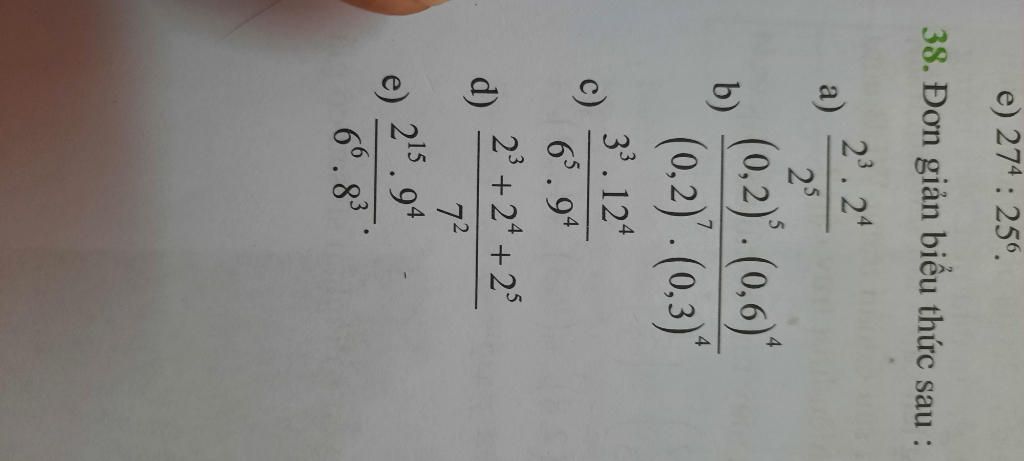 e) 27⁴ : 25⁶.
38. Đơn giản biểu thức sau :
a) 2³ . 2⁴
2⁵
b) (0,2)⁵ . (0,6)⁴
(0,2)⁷ . (0,3)⁴
c) 3³ . 12⁴
6⁵ . 9⁴
d) 2³ + 2⁴ + 2⁵
7²
e) 2¹⁵ . 9⁴
6⁶ . 8³ .